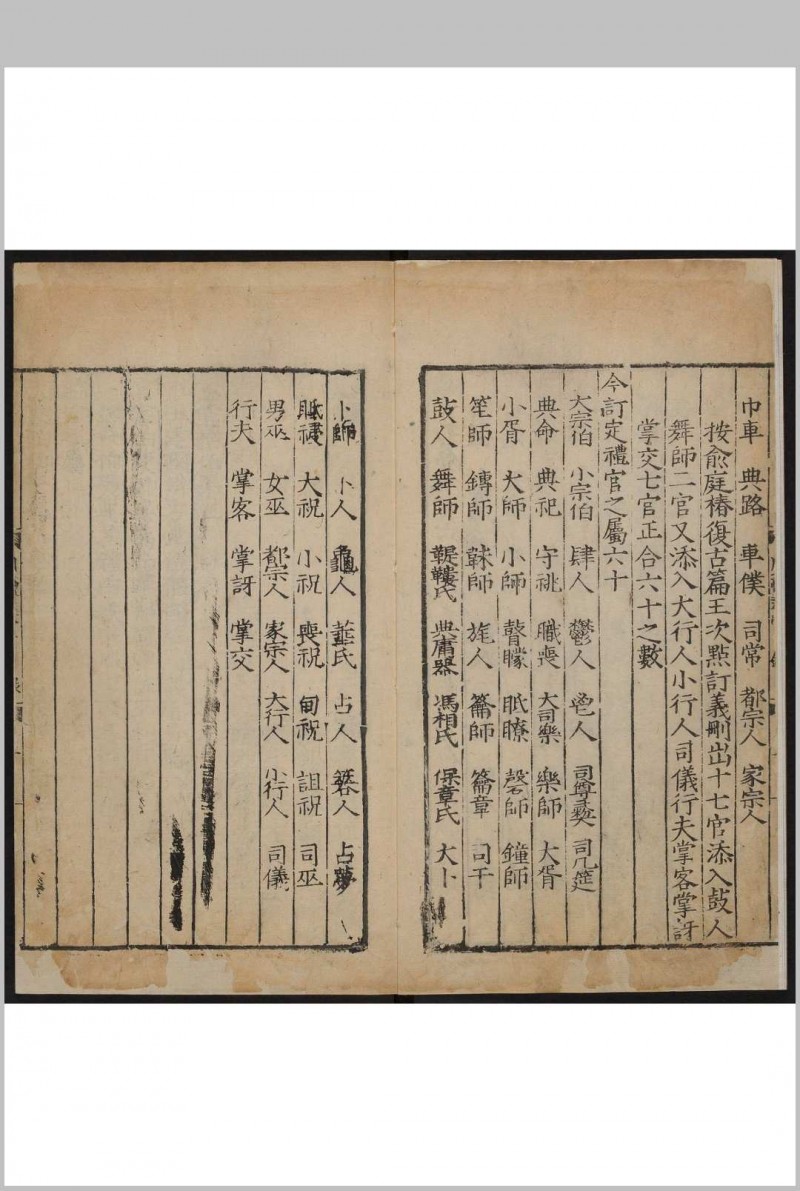 巾車 典路 車僕 司常 都宗人 家宗人
按俞庭椿復古篇王次點訂義刪出十七官添入鼓人
舞師二官又添入大行人小行人司儀行夫掌客掌訝
掌交七官正合六十之數
今訂定禮官之屬六十
大宗伯 小宗伯 肆人 鬱人 鬯人 司尊彝 司几筵
典命 典祀 守祧 職喪 大司樂 樂師 大胥
小胥 大師 小師 瞽矇 眡瞭 磬師 鐘師
笙師 鎛師 韎師 旄人 籥師 籥章 司干
鼓人 舞師 鞮鞻氏 典庸器 馮相氏 保章氏 大卜
卜師 卜人 龜人 菙氏 占人 簭人 占夢
眡祲 大祝 小祝 喪祝 甸祝 詛祝 司巫
男巫 女巫 都宗人 家宗人 大行人 小行人 司儀
行夫 掌客 掌訝 掌交